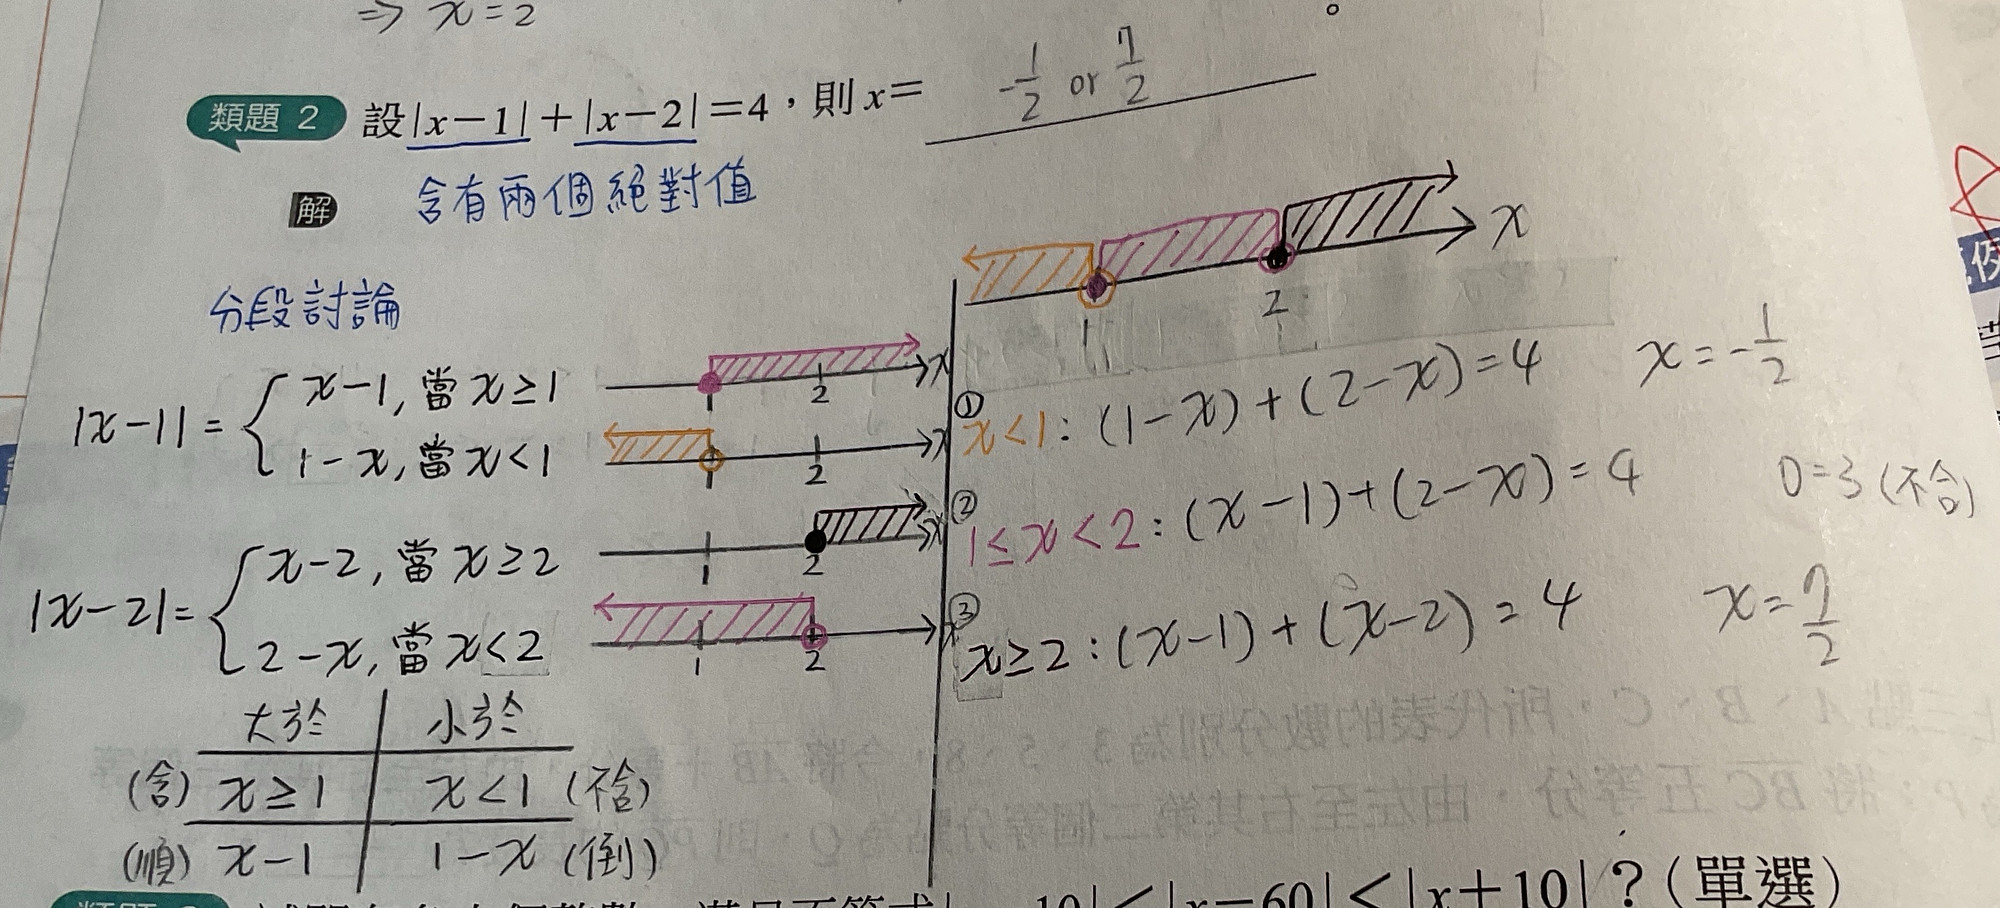 ⇒ x=2
類題 2 設|x−1|+|x−2|=4，則 x= -1/2 or 7/2
解 含有兩個絕對值
分段討論
|x-1|= { x-1, 當 x≥1
1-x, 當 x<1
|x-2|= { x-2, 當 x≥2
2-x, 當 x<2
1 2 x
1 2 x
1 2 x
1 2 x
大於 小於
(含) x≥1 x<1 (不含)
(順) x-1 1-x (倒)
1 2 x
① x<1: (1-x)+(2-x)=4 x=-1/2
② 1≤x<2: (x-1)+(2-x)=4 0=3 (不合)
③ x≥2: (x-1)+(x-2)=4 x=7/2
10|<|x−60|<|x+10|？(單選)